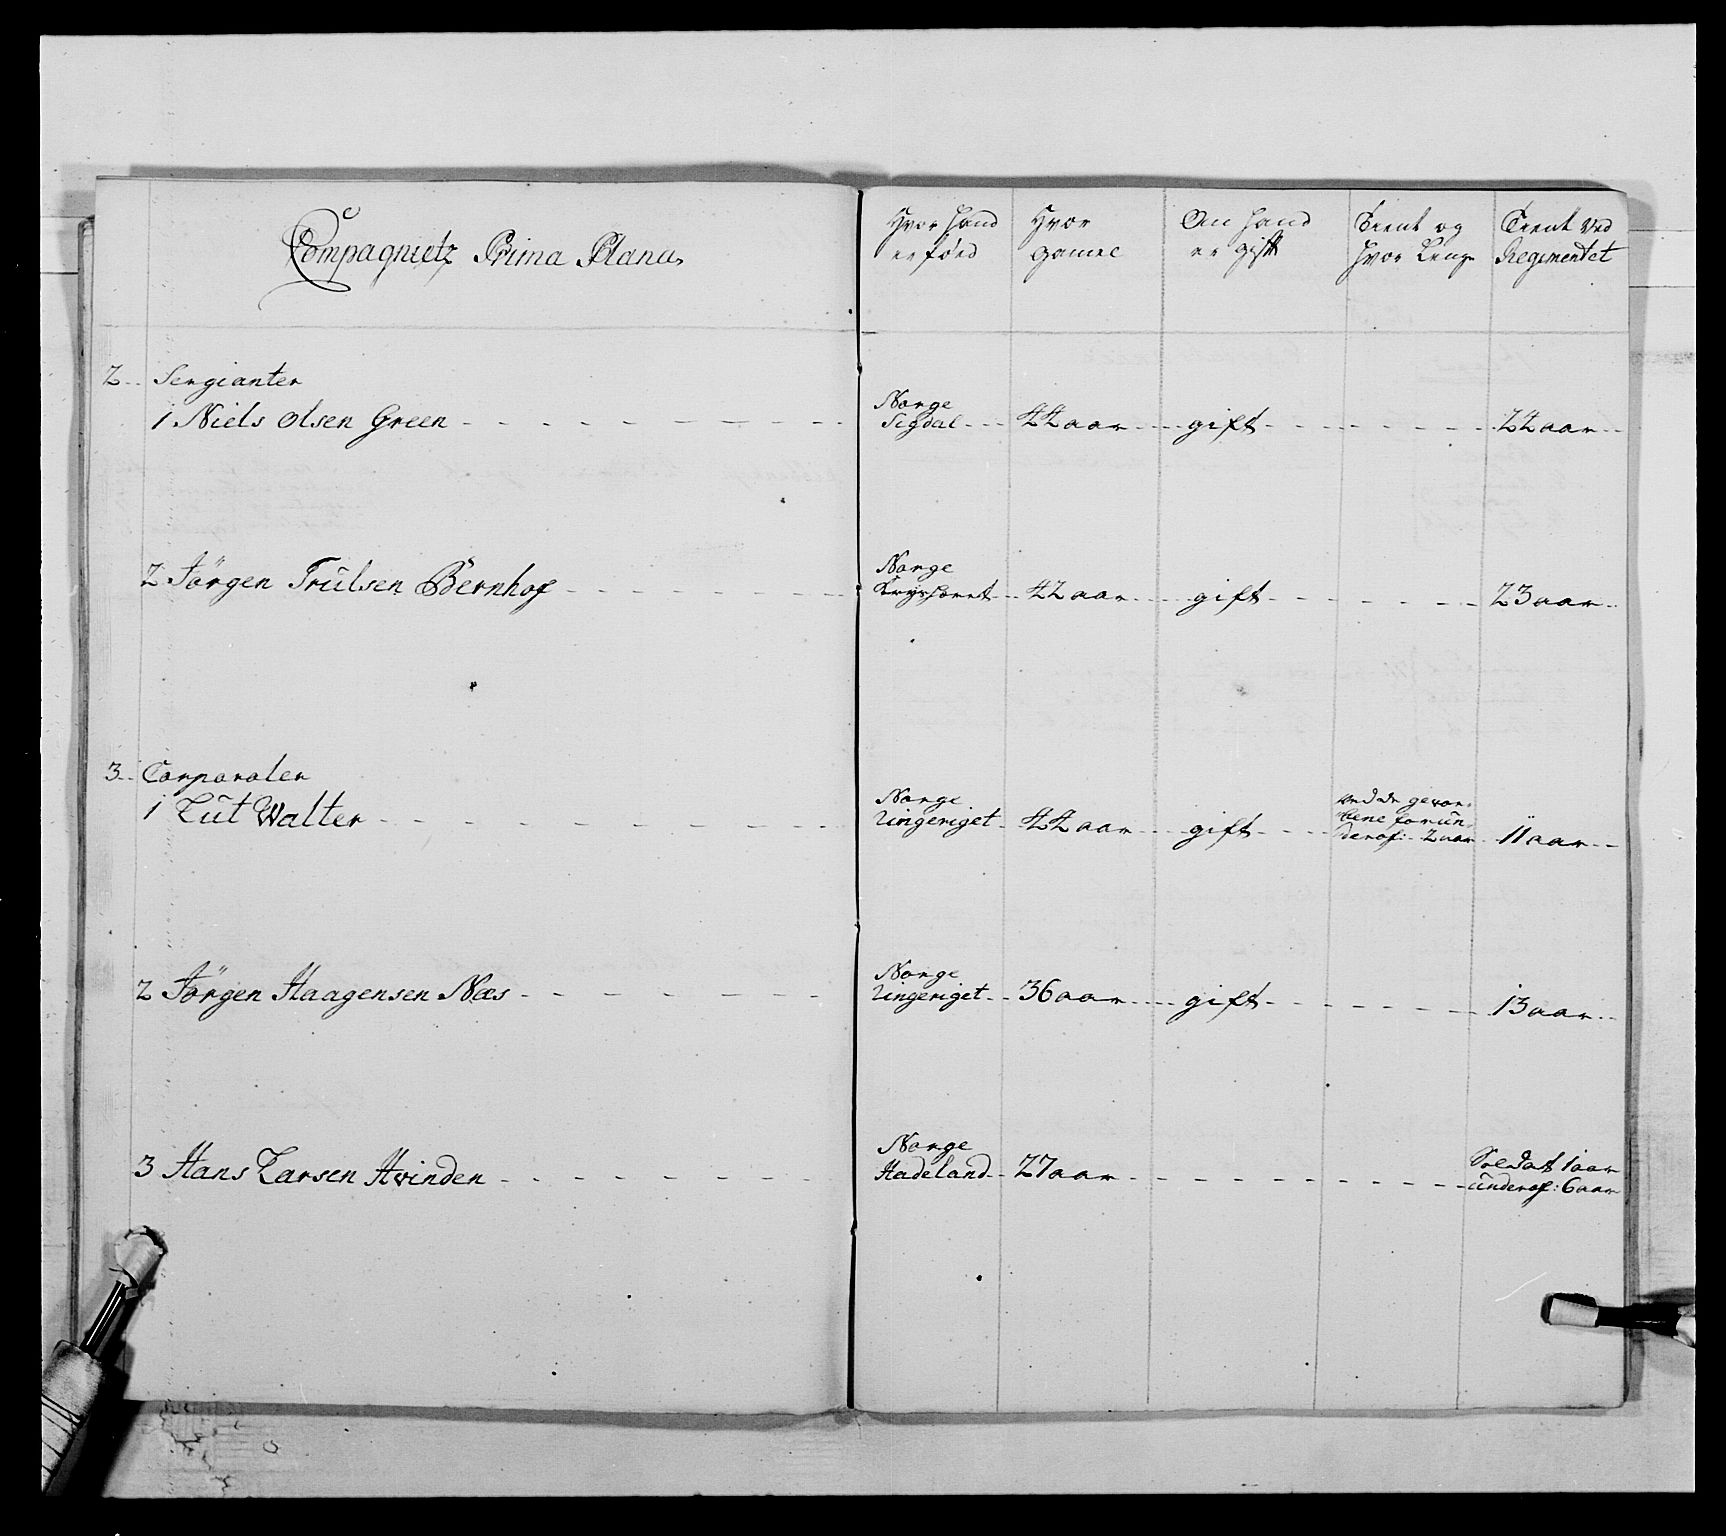 Compagnietz Prima Plana
Hvor hand er född
Hvor gamel
Om hand er gift
Tient og hvor lenge
Tient ved Regimentet
2 Sergianter
1 Niels Olsen Green
Norge Sigdal
44 aar
gift
24 aar
2 Jörgen Trulsen Bernhof
Norge
42 aar
gift
23 aar
3 Corporaler
1 Lut Walter
Norge Ringeriget
44 aar
gift
ved de gevor-
bene for un-
derof: 2 aar
11 aar
2 Jörgen Haagensen Næs
Norge Ringeriget
36 aar
gift
13 aar
3 Hans Larsen Hvinden
Norge Hadeland
27 aar
Soldat 1 aar
underof: 6 aar